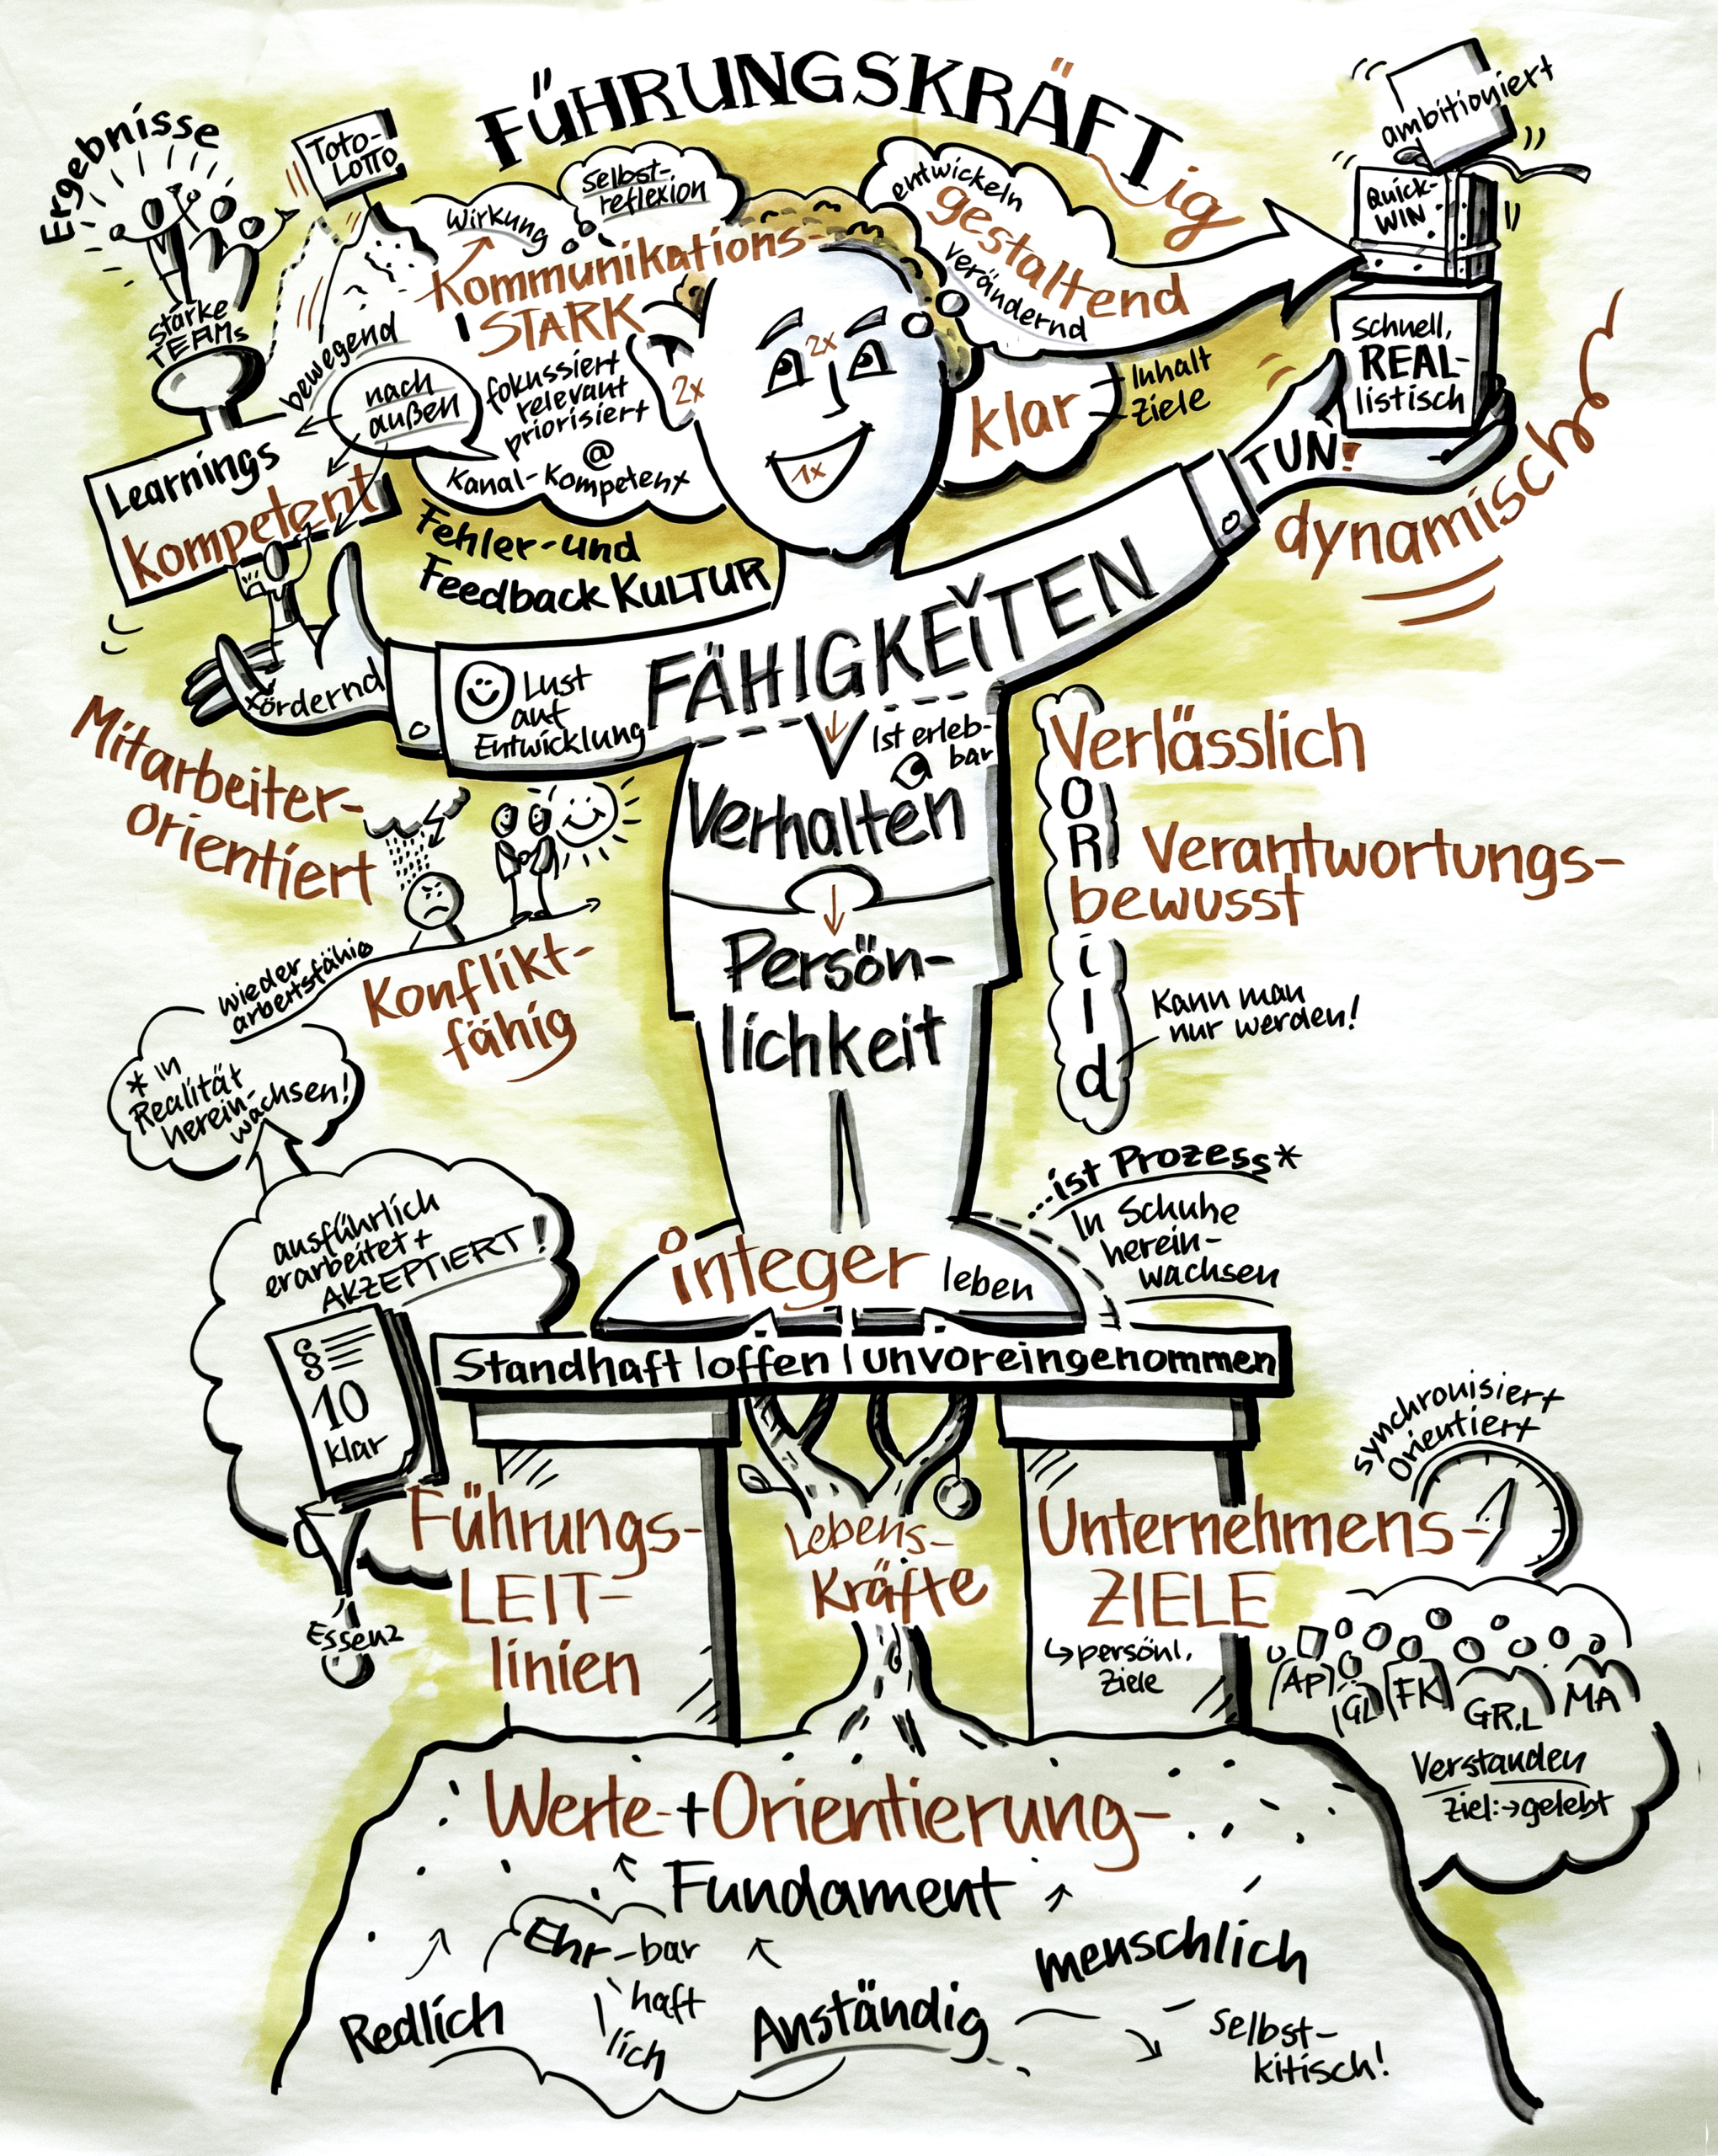 FÜHRUNGSKRÄFTig
Ergebnisse
Toto-
LOTTO
starke
TEAMs
bewegend
nach
außen
Learnings
kompetent
Wirkung
Selbst-
reflexion
Kommunikations-
STARK
fokussiert
relevant
priorisiert
@
Kanal-Kompetent
2x
2x
1x
entwickeln
gestaltend
verändernd
klar
Inhalt
Ziele
ambitioniert
Quick-
WIN
Schnell,
REAL-
listisch
TUN!
dynamisch
Fehler-und
Feedback KULTUR
fördernd
Lust
auf
Entwicklung
FÄHIGKEITEN
Ist erleb-
bar
Verhalten
Persön-
lichkeit
Mitarbeiter-
orientiert
wieder
arbeitsfähig
Konflikt-
fähig
* in
Realität
herein-
wachsen!
Verlässlich
O
R
Verantwortungs-
bewusst
i
l
d
Kann man
nur werden!
...ist Prozess*
In Schuhe
herein-
wachsen
integer leben
Standhaft | offen | unvoreingenommen
ausführlich
erarbeitet +
AKZEPTIERT!
§
§
10
klar
Essenz
Führungs-
LEIT-
linien
Lebens-
Kräfte
Unternehmens-
ZIELE
↳persönl.
Ziele
synchronisiert
Orientiert
AP GL FK GR.L MA
Verstanden
Ziel:→gelebt
Werte-+Orientierung-
Fundament
Ehr-bar
haft
lich
Redlich
Anständig
menschlich
selbst-
kitisch!